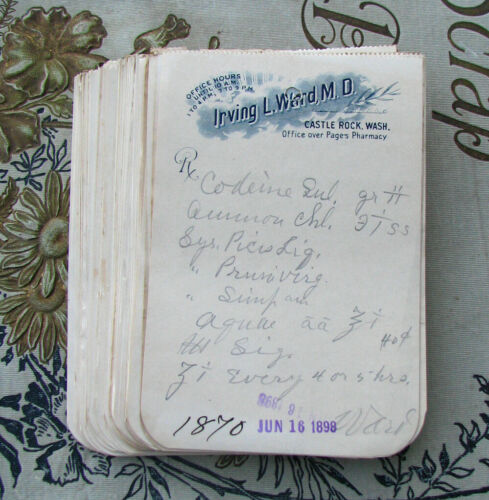 OFFICE HOURS
UNTIL 10 A.M.
1 TO 4 P.M. 7 TO 9 P.M.
Irving L. Ward, M.D.
CASTLE ROCK, WASH.
Office over Page's Pharmacy
Scrap
℞
Codeine Sul. gr ii
Ammon Chl. ʒiss
Syr. Picis Liq.
" Pruni Virg.
" Simp aa
Aquae āā ℥i
40¢
Sig.
ʒi Every 4 or 5 hrs.
Ward
1870
JUN 16 1898